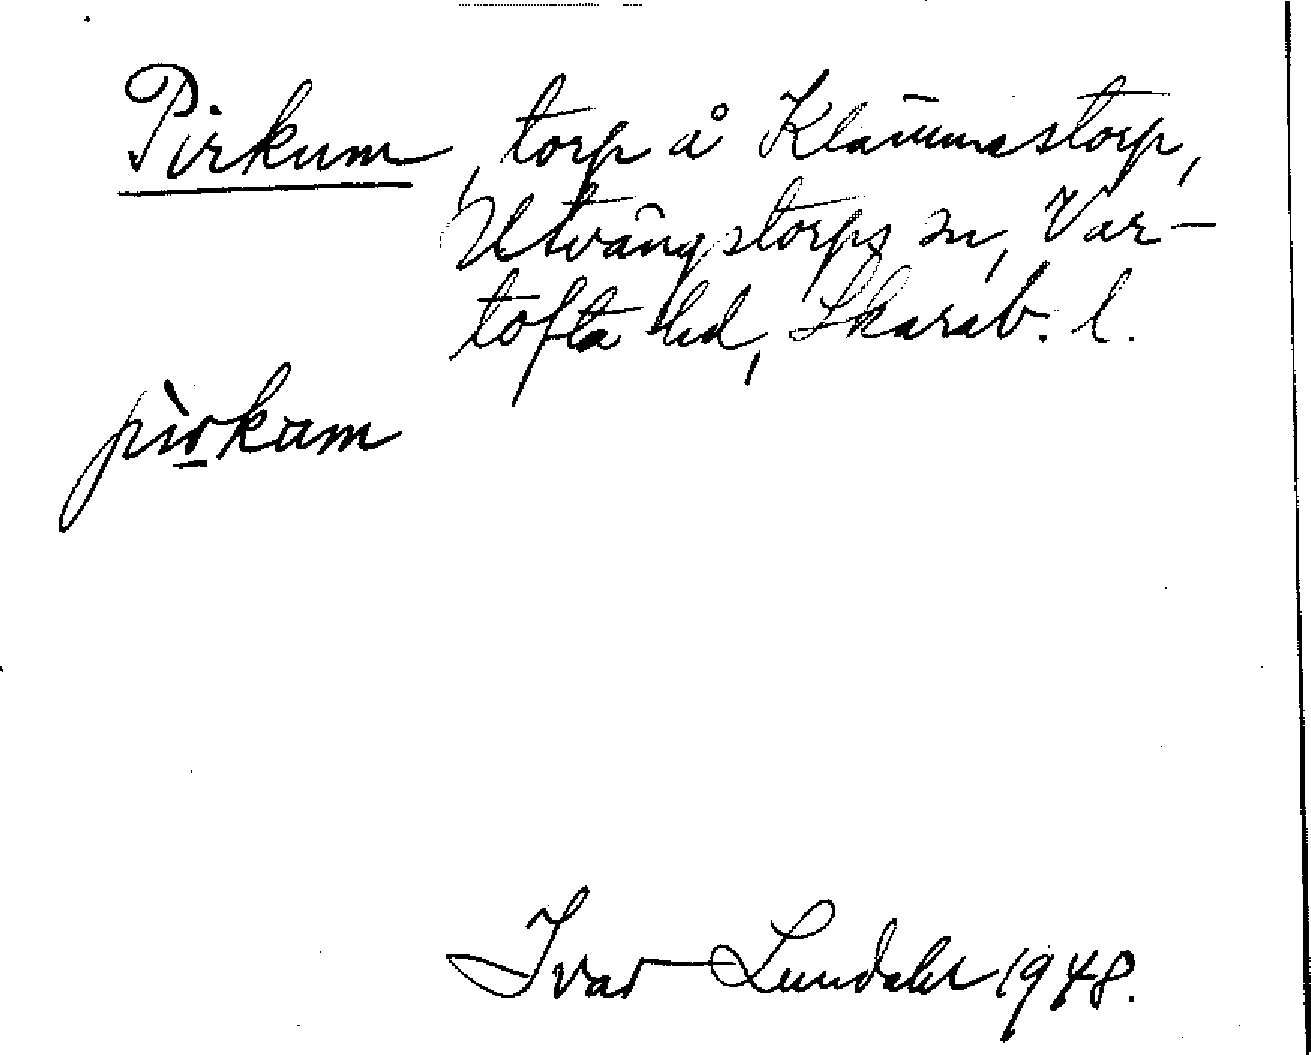 Pirkum, torp å Klämmestorp,
Utvängstorps sn, Var-
tofta hd, Skarab. l.
pìrkam
Ivar Lundahl 1948.